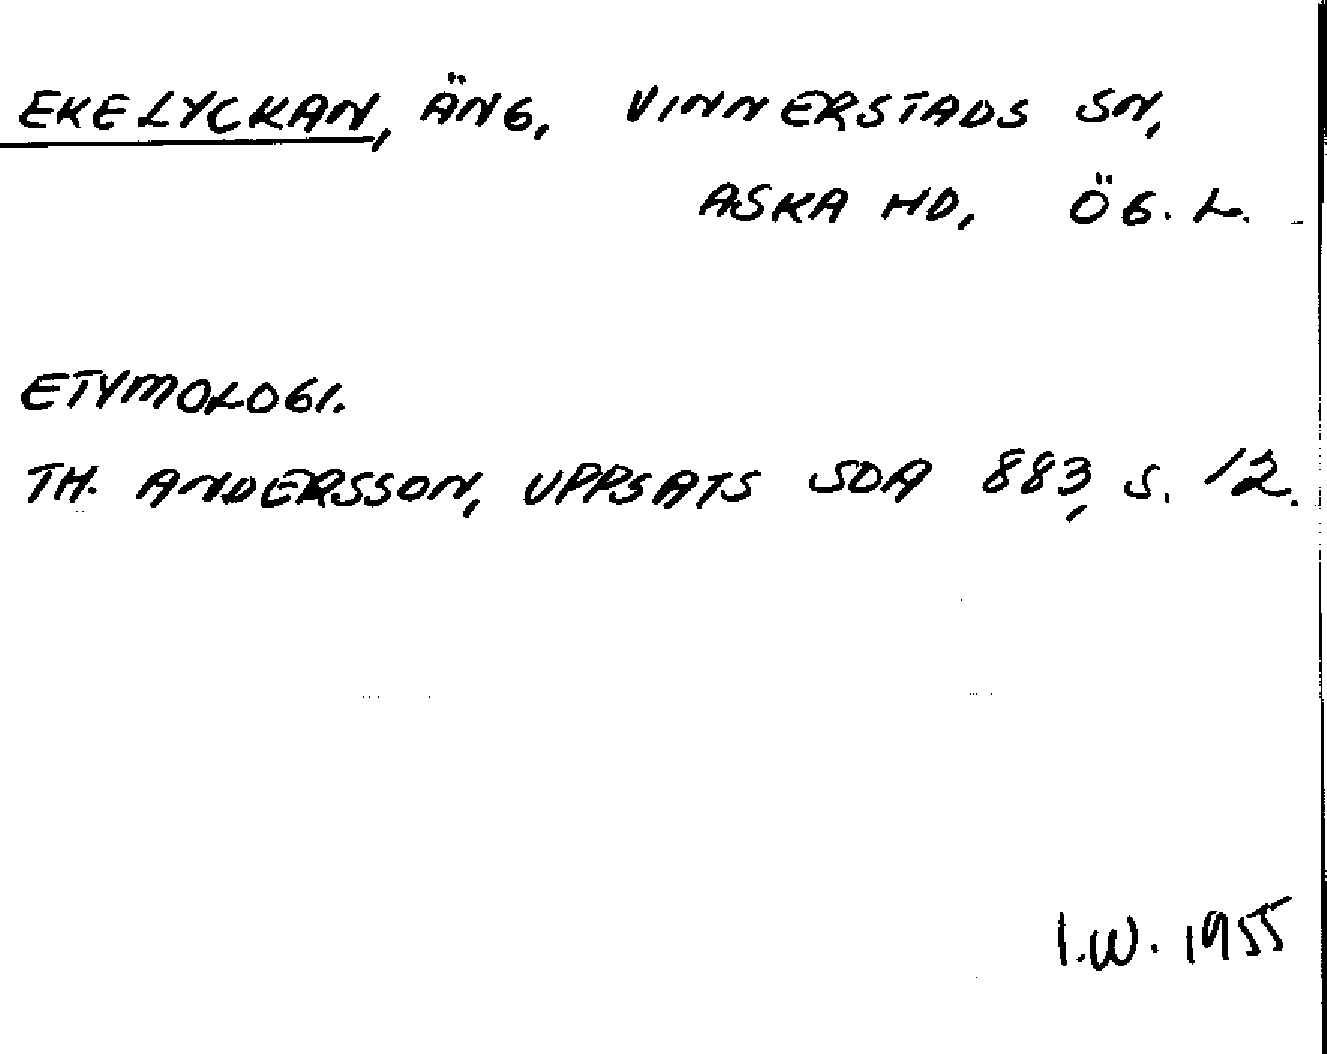 EKELYCKAN, ÄNG, VINNERSTADS SN,
ASKA HD, ÖG. L.
ETYMOLOGI.
TH. ANDERSSON, UPPSATS SOA 883, S. 12.
I.W. 1955